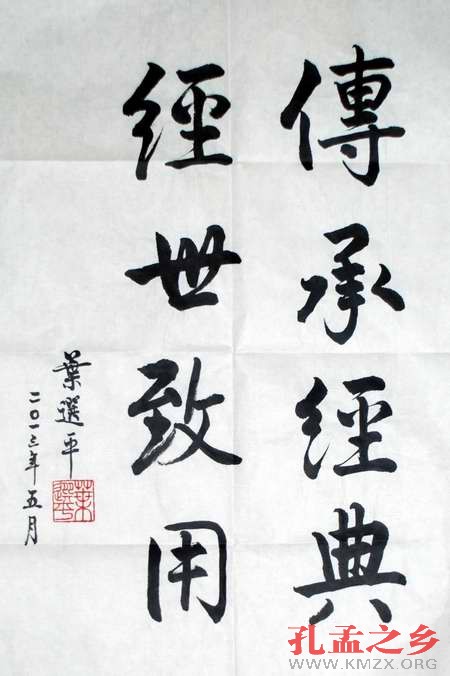 傳承經典
經世致用
葉選平
二〇一三年五月
葉選平
孔孟之乡
WWW.KMZX.ORG